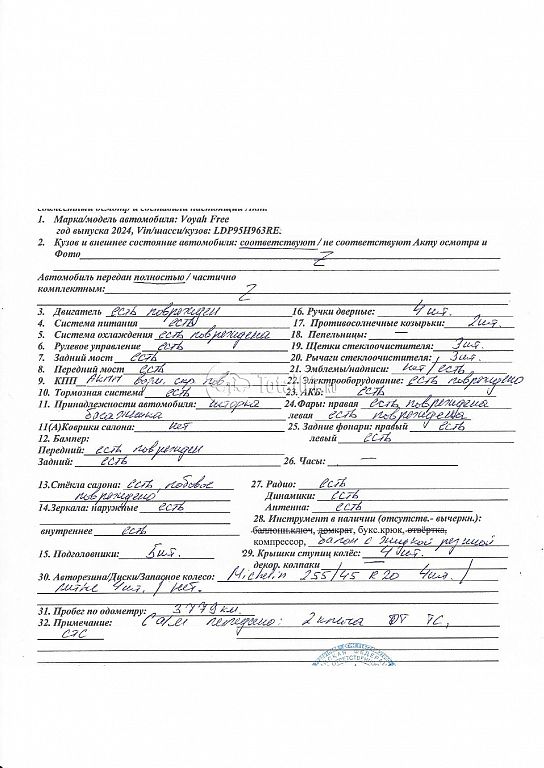 совместный осмотр и составили настоящий Акт.
1. Марка/модель автомобиля: Voyah Free
год выпуска 2024, Vin/шасси/кузов: LDP95H963RE.
2. Кузов и внешнее состояние автомобиля: соответствуют / не соответствуют Акту осмотра и
Фото Z
Автомобиль передан полностью / частично
комплектным: Z
3. Двигатель есть поврежден 16. Ручки дверные: 4 шт.
4. Система питания есть 17. Противосолнечные козырьки: 2 шт.
5. Система охлаждения есть повреждена 18. Пепельницы: —
6. Рулевое управление есть 19. Щетки стеклоочистителя: 3 шт.
7. Задний мост есть 20. Рычаги стеклоочистителя: 3 шт.
8. Передний мост есть 21. Эмблемы/надписи: нет/есть
9. КПП АКПП 22. Электрооборудование: есть повреждено
10. Тормозная система есть 23. АКБ: есть
11. Принадлежности автомобиля: шторка 24. Фары: правая есть повреждена
багажника левая есть повреждена
11(А) Коврики салона: нет 25. Задние фонари: правый есть
12. Бампер: левый есть
Передний: есть поврежден
Задний: есть 26. Часы: —
13. Стёкла салона: есть лобовое 27. Радио: есть
повреждено Динамики: есть
14. Зеркала: наружные есть Антенна: есть
28. Инструмент в наличии (отсутств.- вычеркн.):
внутреннее есть баллонн.ключ, домкрат, букс.крюк, отвёртка,
компрессор, балон с жидкой резиной
15. Подголовники: 5 шт. 29. Крышки ступиц колёс: 4 шт.
декор. колпаки —
30. Авторезина/Диски/Запасное колесо: Michelin 255/45 R20 4шт. /
литые 4шт. / нет.
31. Пробег по одометру: 3779 км
32. Примечание: С а/м передано: 2 ключа от ТС,
СТС